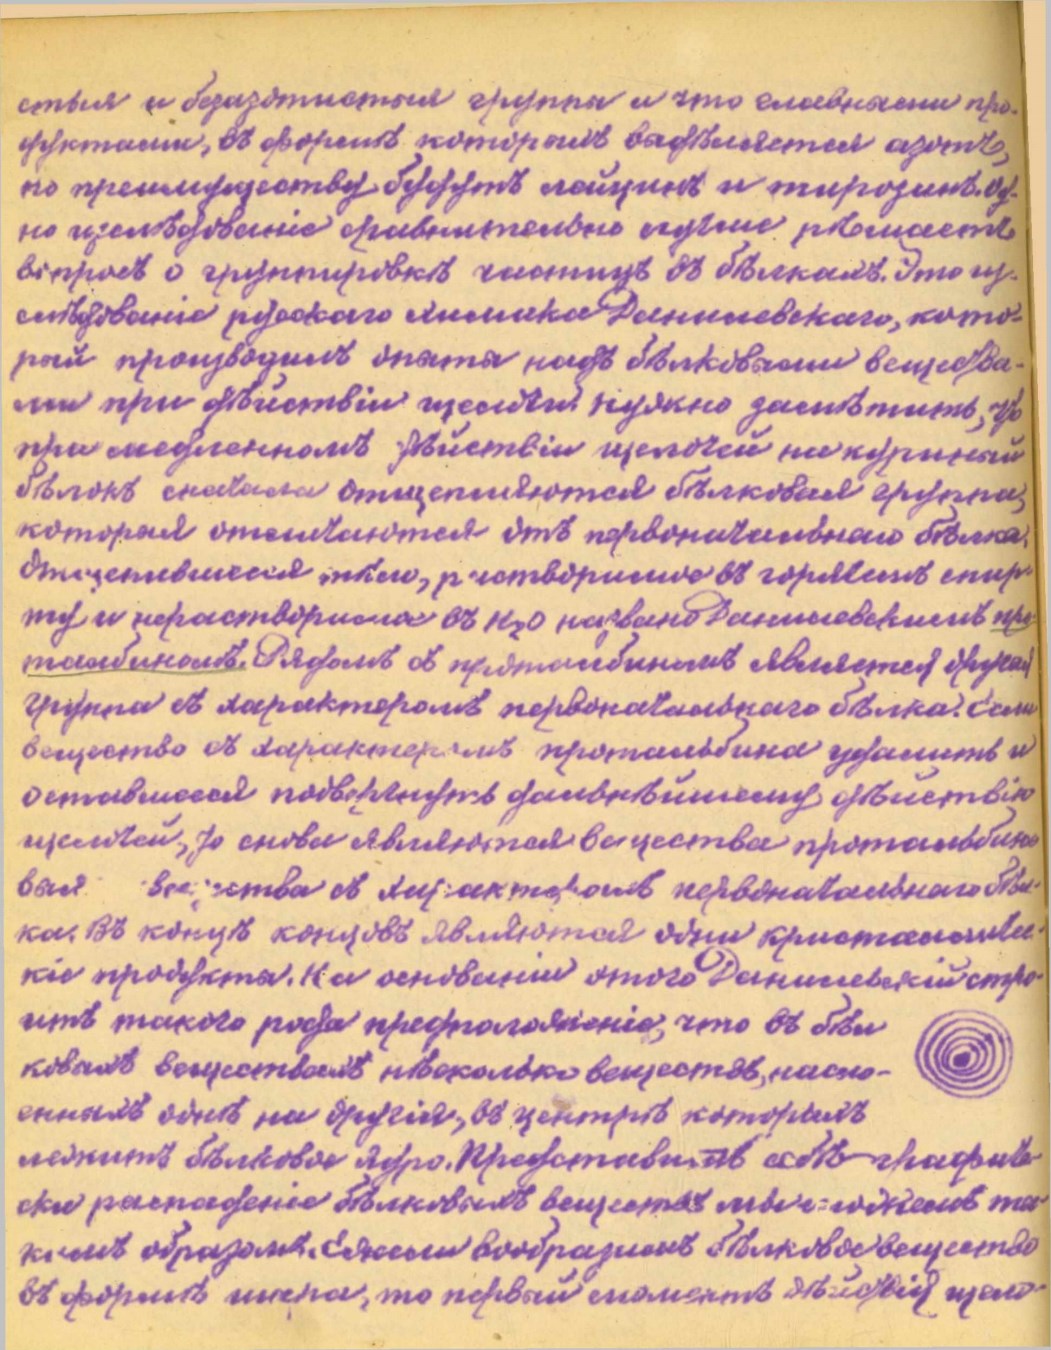 стыя и безазотистыя группы и что главными про-
дуктами, въ форме которыхъ выделяется азотъ,
по преимуществу будутъ лейцинъ и тирозинъ. Од-
но изследованiе сравнительно лучше решаетъ
вопросъ о группировке частицъ въ белкахъ. Это из-
следованiе русскаго химика Данилевскаго, кото-
рый производилъ опыты надъ белковыми вещества-
ми при действiи щелочи. Нужно заметить, что
при медленномъ действiи щелочей на куриный
белокъ сначала отщепляются белковыя группы,
которыя отличаются отъ первоначальнаго белка.
Отщепившееся тело, растворимое въ горячемъ спир-
ту и нерастворимое въ H2O названо Данилевскимъ про-
тальбиномъ. Рядомъ съ протальбиномъ является другая
группа съ характеромъ первоначальнаго белка. Если
вещество съ характеромъ протальбина удалить и
оставшееся подвергнуть дальнѣйшему действiю
щелочей, то снова являются вещества протальбино-
выя вещества съ характеромъ первоначальнаго бел-
ка. Въ конце концовъ являются одни кристалличес-
кiе продукты. На основанiи этого Данилевскiй стро-
итъ такого рода предположенiе, что въ бел-
ковыхъ веществахъ несколько веществъ, насло-
енныхъ одне на другiя, въ центре которыхъ
лежитъ белковое ядро. Представить себе графиче-
ски распаденiе белковыхъ веществъ мы можемъ та-
кимъ образомъ. Если вообразимъ белковое вещество
въ форме шара, то первый моментъ действiя щело-